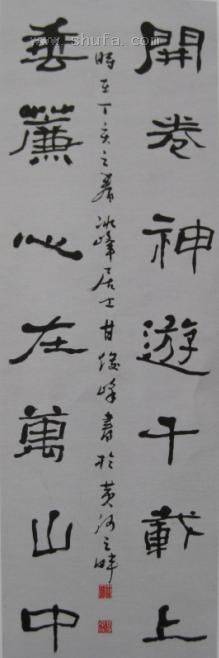 www.shufa.com
開卷神遊千載上
垂簾心在萬山中
時在丁亥之 冰峰居士甘俊峰書於黄河之畔